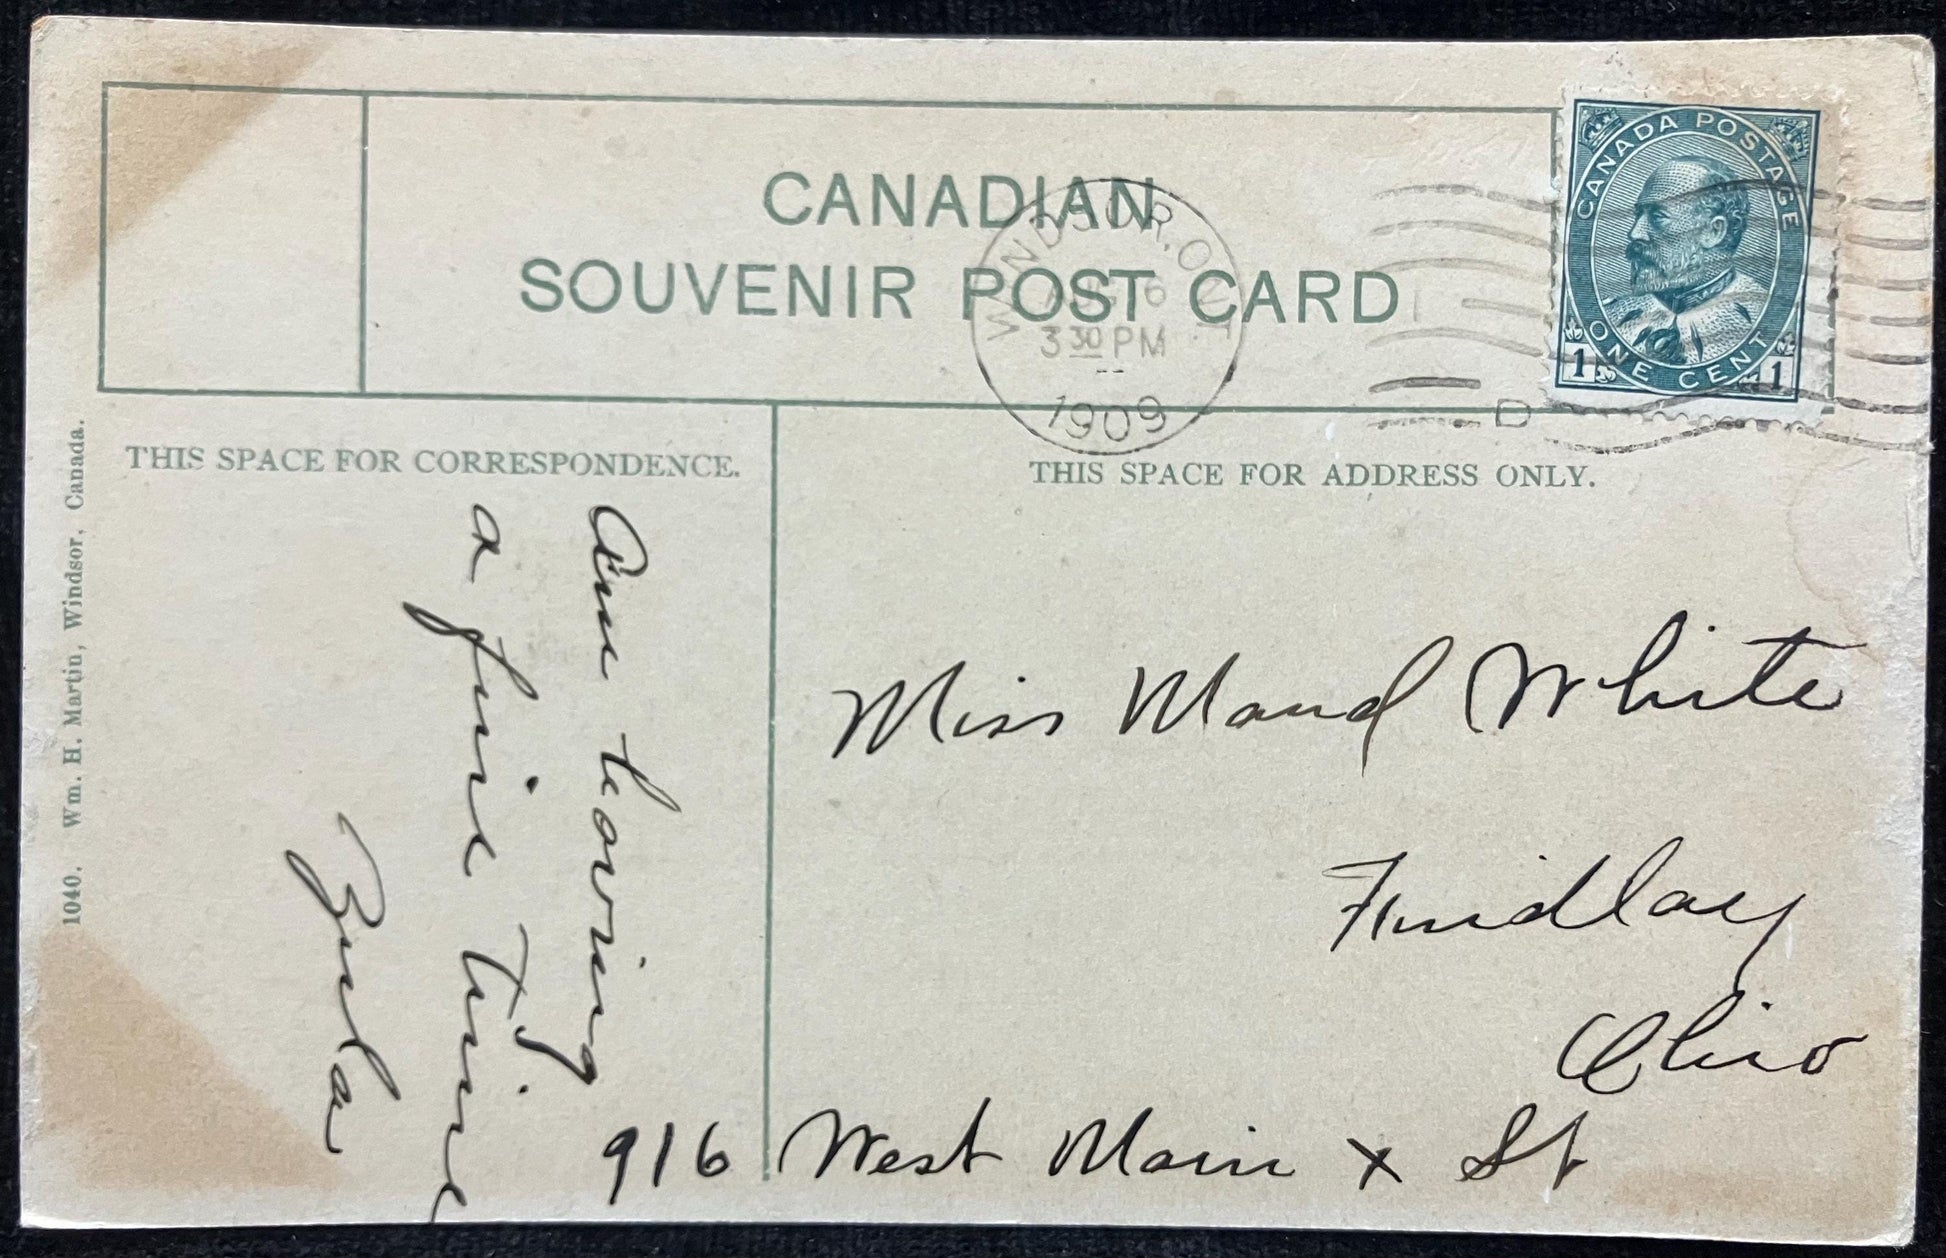 CANADIAN
SOUVENIR POST CARD
CANADA POSTAGE
ONE CENT
1 1
WINDSOR, ONT
AUG 6
3 30 PM
1909
D
THIS SPACE FOR CORRESPONDENCE.
THIS SPACE FOR ADDRESS ONLY.
Am having
a fine time
Zula
Miss Maud White
Findlay
Ohio
916 West Main x St
1040. Wm. H. Martin, Windsor, Canada.